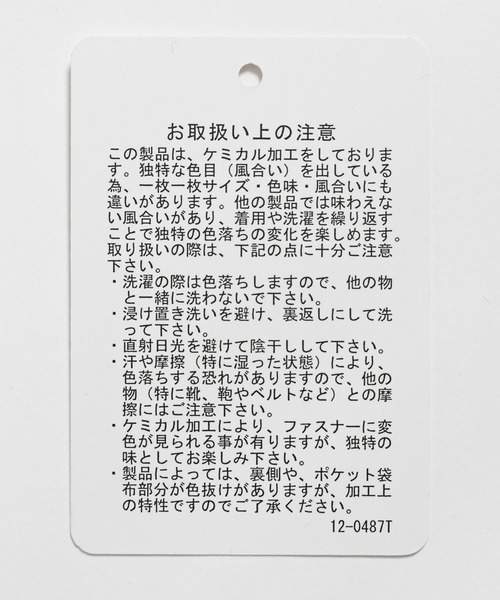 お取扱い上の注意
この製品は、ケミカル加工をしておりま
す。独特な色目（風合い）を出している
為、一枚一枚サイズ・色味・風合いにも
違いがあります。他の製品では味わえな
い風合いがあり、着用や洗濯を繰り返す
ことで独特の色落ちの変化を楽しめます。
取り扱いの際は、下記の点に十分ご注意
下さい。
・洗濯の際は色落ちしますので、他の物
と一緒に洗わないで下さい。
・浸け置き洗いを避け、裏返しにして洗
って下さい。
・直射日光を避けて陰干しして下さい。
・汗や摩擦（特に湿った状態）により、
色落ちする恐れがありますので、他の
物（特に靴、鞄やベルトなど）との摩
擦にはご注意下さい。
・ケミカル加工により、ファスナーに変
色が見られる事が有りますが、独特の
味としてお楽しみ下さい。
・製品によっては、裏側や、ポケット袋
布部分が色抜けがありますが、加工上
の特性ですのでご了承ください。
12-0487T